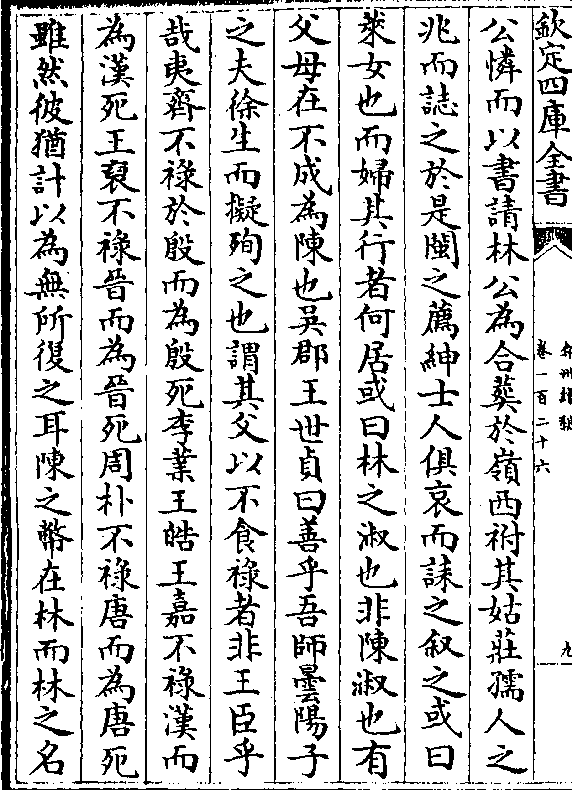 欽定四庫全書
卷一百二十六
公憐而以書請林公為合葬於嶺西祔其姑莊孺人之
兆而誌之於是閩之薦紳士人俱哀而誄之叙之或曰
萊女也而婦其行者何居或曰林之淑也非陳淑也有
父母在不成為陳也吳郡王世貞曰善乎吾師曇陽子
之夫徐生而擬殉之也謂其父以不食祿者非王臣乎
哉夷齊不祿於殷而為殷死李業王皓王嘉不祿漢而
為漢死王裒不祿晉而為晉死周朴不祿唐而為唐死
雖然彼猶計以為無所復之耳陳之幣在林而林之名